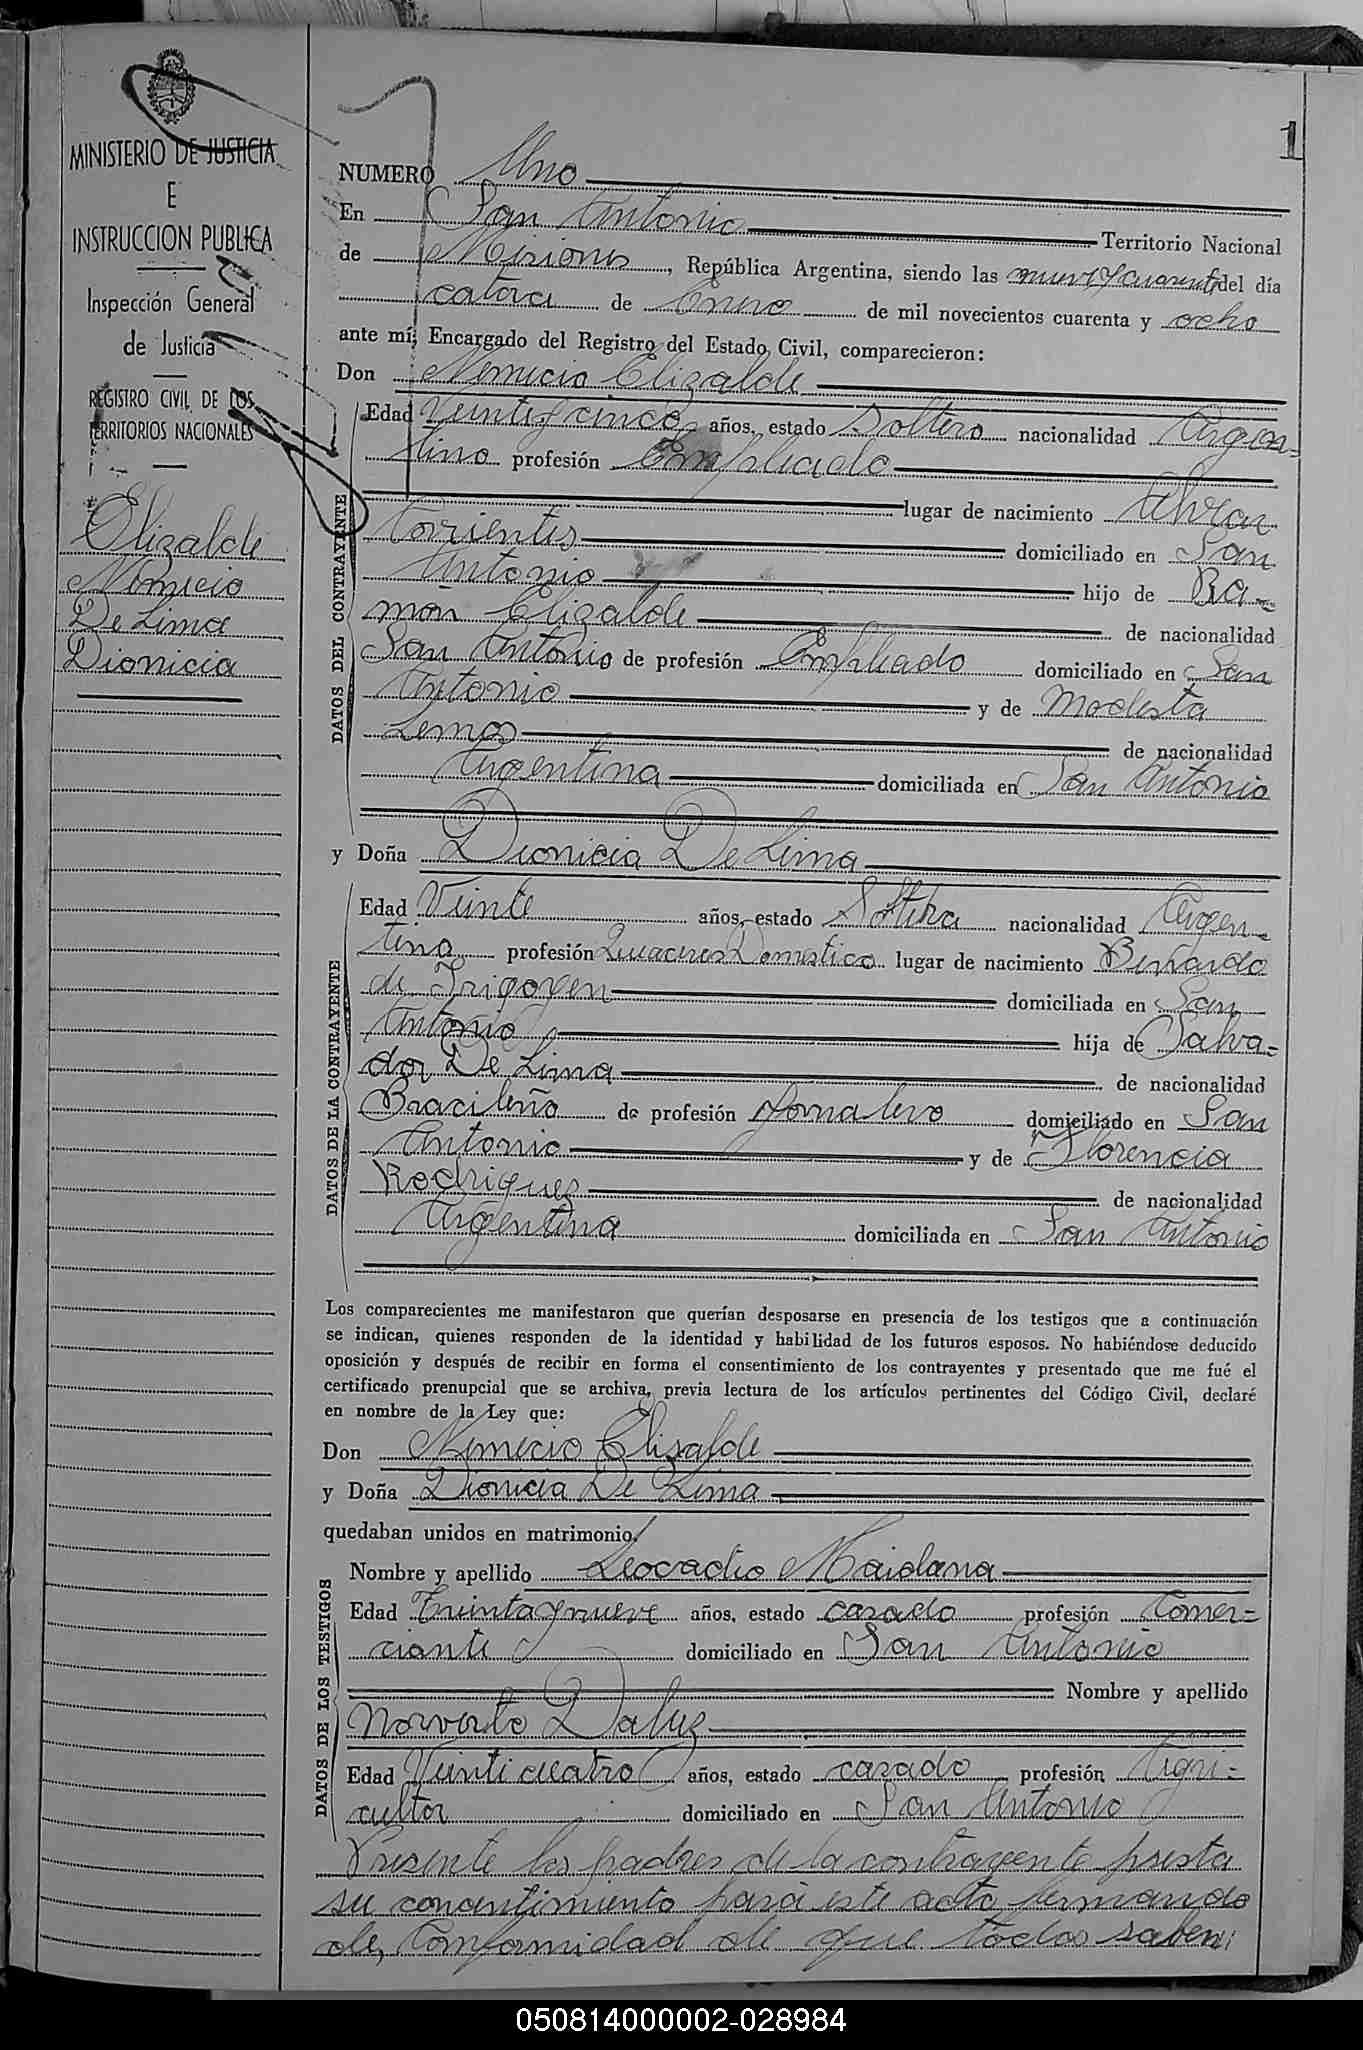 1
MINISTERIO DE JUSTICIA
E
INSTRUCCION PUBLICA
Inspección General
de Justicia
REGISTRO CIVIL DE LOS
TERRITORIOS NACIONALES
Elizalde
Nemecio
De Lima
Dionicia
NUMERO Uno
En San Antonio Territorio Nacional
de Misiones, República Argentina, siendo las nueve y cuarenta del día
catorce de Enero de mil novecientos cuarenta y ocho
ante mí, Encargado del Registro del Estado Civil, comparecieron:
Don Nemecio Elizalde
DATOS DEL CONTRAYENTE
Edad Veinte y cinco años, estado Soltero nacionalidad Argen=
tino profesión Empleado
lugar de nacimiento
Corrientes domiciliado en San
Antonio hijo de Ra-
món Elizalde de nacionalidad
San Antonio de profesión Empleado domiciliado en San
Antonio y de Modesta
Lemos de nacionalidad
Argentina domiciliada en San Antonio
y Doña Dionicia De Lima
DATOS DE LA CONTRAYENTE
Edad Veinte años, estado Soltera nacionalidad Argen=
tina profesión Domestico lugar de nacimiento Bernardo
de Irigoyen domiciliada en San
Antonio hija de Salva=
dor De Lima de nacionalidad
Bracileño de profesión Jornalero domiciliado en San
Antonio y de Florencia
Rodriguez de nacionalidad
Argentina domiciliada en San Antonio
Los comparecientes me manifestaron que querían desposarse en presencia de los testigos que a continuación
se indican, quienes responden de la identidad y habilidad de los futuros esposos. No habiéndose deducido
oposición y después de recibir en forma el consentimiento de los contrayentes y presentado que me fué el
certificado prenupcial que se archiva, previa lectura de los artículos pertinentes del Código Civil, declaré
en nombre de la Ley que:
Don Nemecio Elisalde
y Doña Dionicia De Lima
quedaban unidos en matrimonio.
DATOS DE LOS TESTIGOS
Nombre y apellido Leocadio Maidana
Edad Treinta y nueve años, estado casado profesión Comer=
ciante domiciliado en San Antonio
Nombre y apellido
Norverto Daluz
Edad Veinticuatro años, estado casado profesión Agri=
cultor domiciliado en San Antonio
Presente los padres de la contrayente presta
su concentimiento para este acto firmando
de, Comformidad de que todos saben;
050814000002-028984